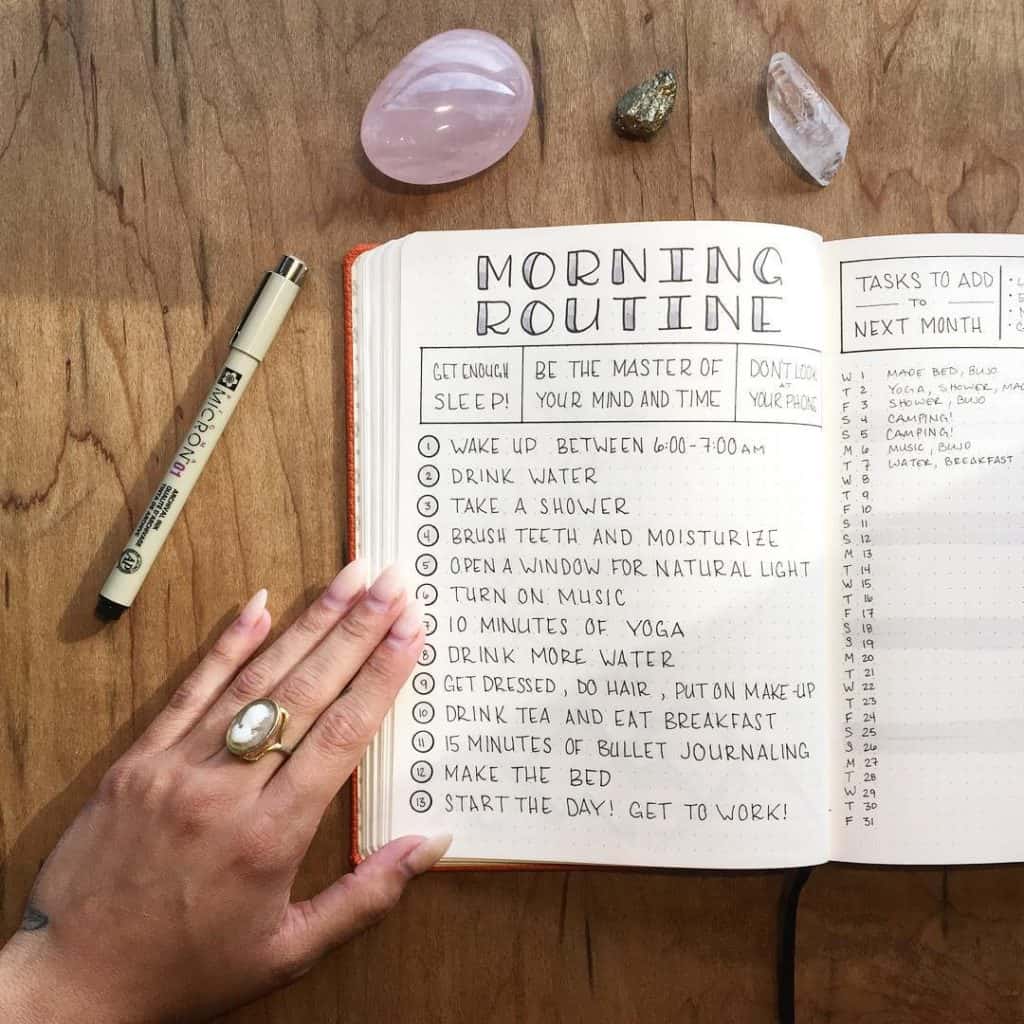 MORNING
ROUTINE
GET ENOUGH
SLEEP!
BE THE MASTER OF
YOUR MIND AND TIME
DON'T LOOK
AT
YOUR PHONE
1 WAKE UP BETWEEN 6:00-7:00 AM
2 DRINK WATER
3 TAKE A SHOWER
4 BRUSH TEETH AND MOISTURIZE
5 OPEN A WINDOW FOR NATURAL LIGHT
6 TURN ON MUSIC
7 10 MINUTES OF YOGA
8 DRINK MORE WATER
9 GET DRESSED, DO HAIR, PUT ON MAKE-UP
10 DRINK TEA AND EAT BREAKFAST
11 15 MINUTES OF BULLET JOURNALING
12 MAKE THE BED
13 START THE DAY! GET TO WORK!
TASKS TO ADD
TO
NEXT MONTH
W 1 MADE BED, BUJO
T 2 YOGA, SHOWER,
F 3 SHOWER, BUJO
S 4 CAMPING!
S 5 CAMPING!
M 6 MUSIC, BUJO
T 7 WATER, BREAKFAST
W 8
T 9
F 10
S 11
S 12
M 13
T 14
W 15
T 16
F 17
S 18
S 19
M 20
T 21
W 22
T 23
F 24
S 25
S 26
M 27
T 28
W 29
T 30
F 31
MICRON 01
ARCHIVAL INK
AP